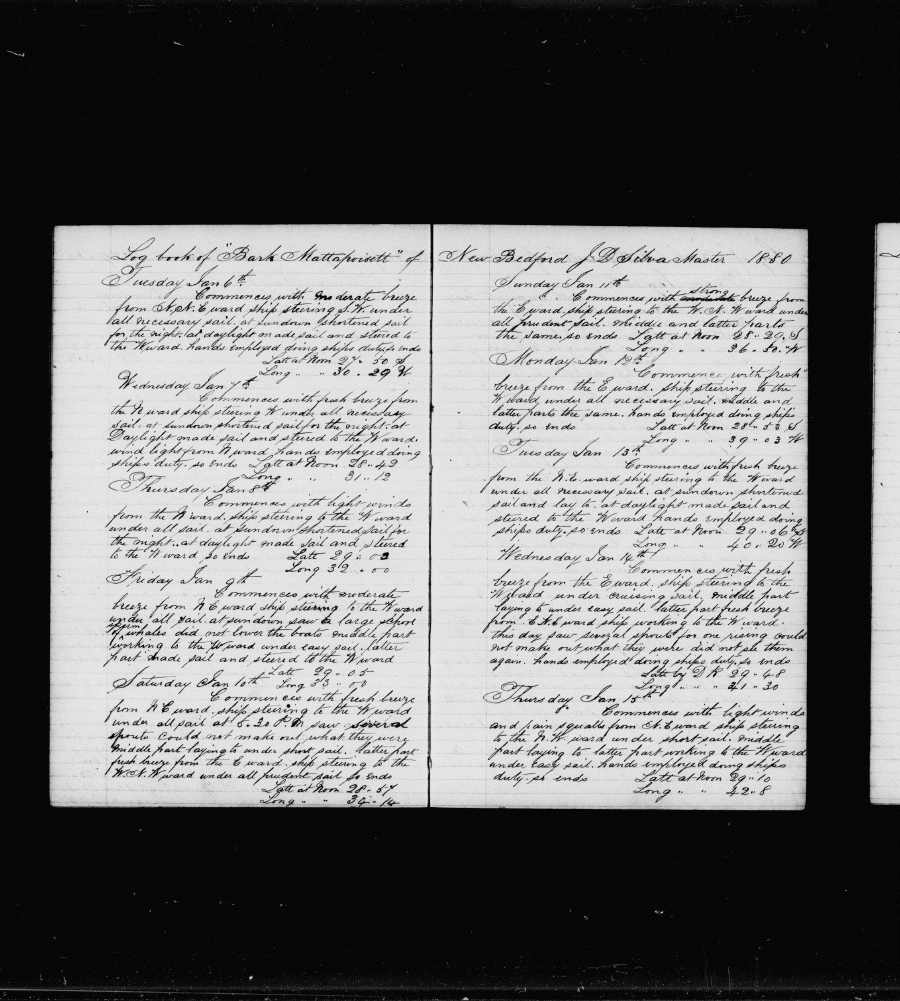 Log book of "Bark Mattapoisett" of
Tuesday Jan 6th
Commences with moderate breeze
from N.N.E ward ship steering S.W. under
all necessary sail. at sundown shortened sail
for the night. at daylight made sail and steered to
the W ward. hands employed doing ships duty. so ends
Latt at Noon 27 .. 50 S
Long .. .. 30 .. 29 W
Wednesday Jan 7th
Commences with fresh breeze from
the N ward ship steering W under all necessary
sail. at sundown shortened sail for the night. at
Daylight made sail and steered to the W ward.
wind light from N ward. hands employed doing
ships duty. so ends Latt at Noon 28 .. 43
Long .. .. 31 .. 12
Thursday Jan 8th
Commences with light winds
from the N ward. ship steering to the W ward
under all sail. at sundown shortened sail for
the night. at daylight made sail and steered
to the W ward so ends Latt 29 .. 02
Long 32 .. 00
Friday Jan 9th
Commences with moderate
breeze from N E ward ship steering to the W ward
under all sail. at sundown saw a large school
of sperm whales did not lower the boats middle part
working to the W ward under easy sail. latter
part made sail and steered to the W ward
Latt 29 .. 05
Long 33 .. 00
Saturday Jan 10th
Commences with fresh breeze
from N E ward, ship steering to the W ward
under all sail at 5.30 P.M saw several
spouts could not make out what they were
middle part laying to under short sail. latter part
fresh breeze from the E ward. ship steering to the
W.N.W ward under all prudent sail so ends
Latt at Noon 28 .. 57
Long .. .. 34 .. 14
New Bedford J D Silva Master 1880
Sunday Jan 11th
strong
Commences with moderate breeze from
the E ward, ship steering to the W.N.W ward under
all prudent sail. middle and latter parts
the same, so ends Latt at Noon 28 .. 29 S
Long .. .. 36 .. 30 W
Monday Jan 12th
Commence with fresh
breeze from the E ward. ship steering to the
W ward under all necessary sail. middle and
latter parts the same. hands employed doing ships
duty. so ends Latt at Noon 28 .. 53 S
Long .. .. 39 .. 03 W
Tuesday Jan 13th
Commences with fresh breeze
from the N.E ward ship steering to the W ward
under all necessary sail. at sundown shortened
sail and lay to. at daylight made sail and
steered to the W ward hands employed doing
ships duty. so ends Latt at Noon 29 .. 06 S
Long .. .. 40 .. 20 W
Wednesday Jan 14th
Commences with fresh
breeze from the E ward. ship steering to the
W ward under cruising sail, middle part
laying to under easy sail. latter part fresh breeze
from E.N.E ward ship working to the W ward.
this day saw several spouts for one rising could
not make out what they were did not see them
again. hands employed doing ships duty. so ends
Latt by D R 29 .. 48
Long .. .. .. 41 .. 30
Thursday Jan 15th
Commences with light winds
and rain squalls from N.E ward ship steering
to the N.W. ward under short sail. middle
part laying to latter part working to the W ward
under easy sail. hands employed doing ships
duty. so ends Latt at Noon 29 .. 10
Long .. .. 42 .. 8